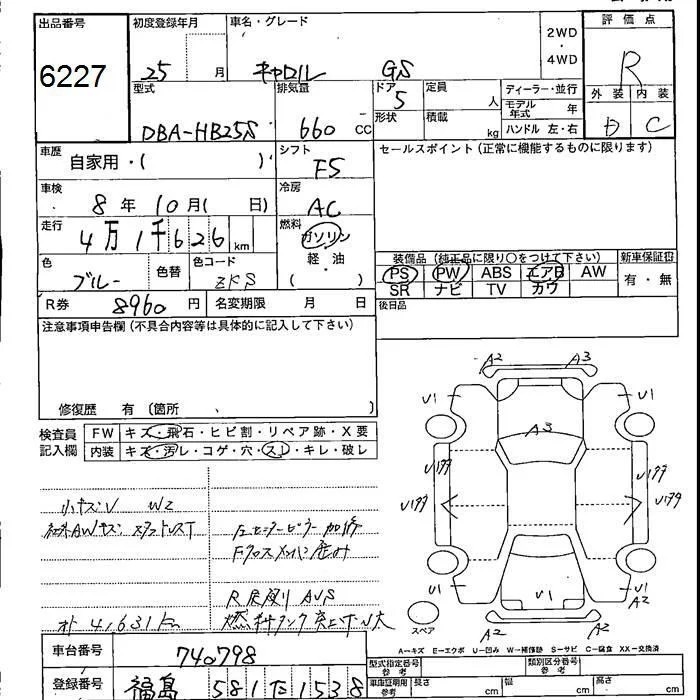 出品番号 初度登録年月 車名・グレード 2WD ・ 4WD 評価点
6227 25 月 キャロル GS R
型式 排気量 ドア 5 定員 人 ディーラー・並行 外装 内装
DBA-HB25S 660 CC 形状 積載 kg モデル年式 年 D C
ハンドル 左・右
車歴 自家用・( ) シフト F5 セールスポイント(正常に機能するものに限ります)
車検 8年 10月( 日) 冷房 AC
走行 4万1千626 km 燃料 ガソリン 軽・油 ( )
装備品(純正品に限り○をつけて下さい) 新車保証書
色 ブルー 色替 色コード ZKS
PS PW ABS エアB AW 有・無
SR ナビ TV カワ
R券 8960円 名変期限 月 日 後日品
注意事項申告欄(不具合内容等は具体的に記入して下さい)
修復歴 有 (箇所 、 )
検査員記入欄 FW キズ・飛石・ヒビ割・リペア跡・X要
内装 キズ・汚レ・コゲ・穴・スレ・キレ・破レ
A2 A3
U1 U1
A3
U1
U1 U1
A2
A2 A2
スペア
小キズU W2
社外AWキズ スタッドレスT
Fクロスメンバー歪み
オト 41,631km
A-キズ E-エクボ U-凹み W-補修跡 S-サビ C-腐食 XX-交換済
車台番号 740798
型式指定番号 参考 類別区分番号 参考
登録番号 福島 581 1538
車庫証明用 参考 長さ cm 幅 cm 高さ cm